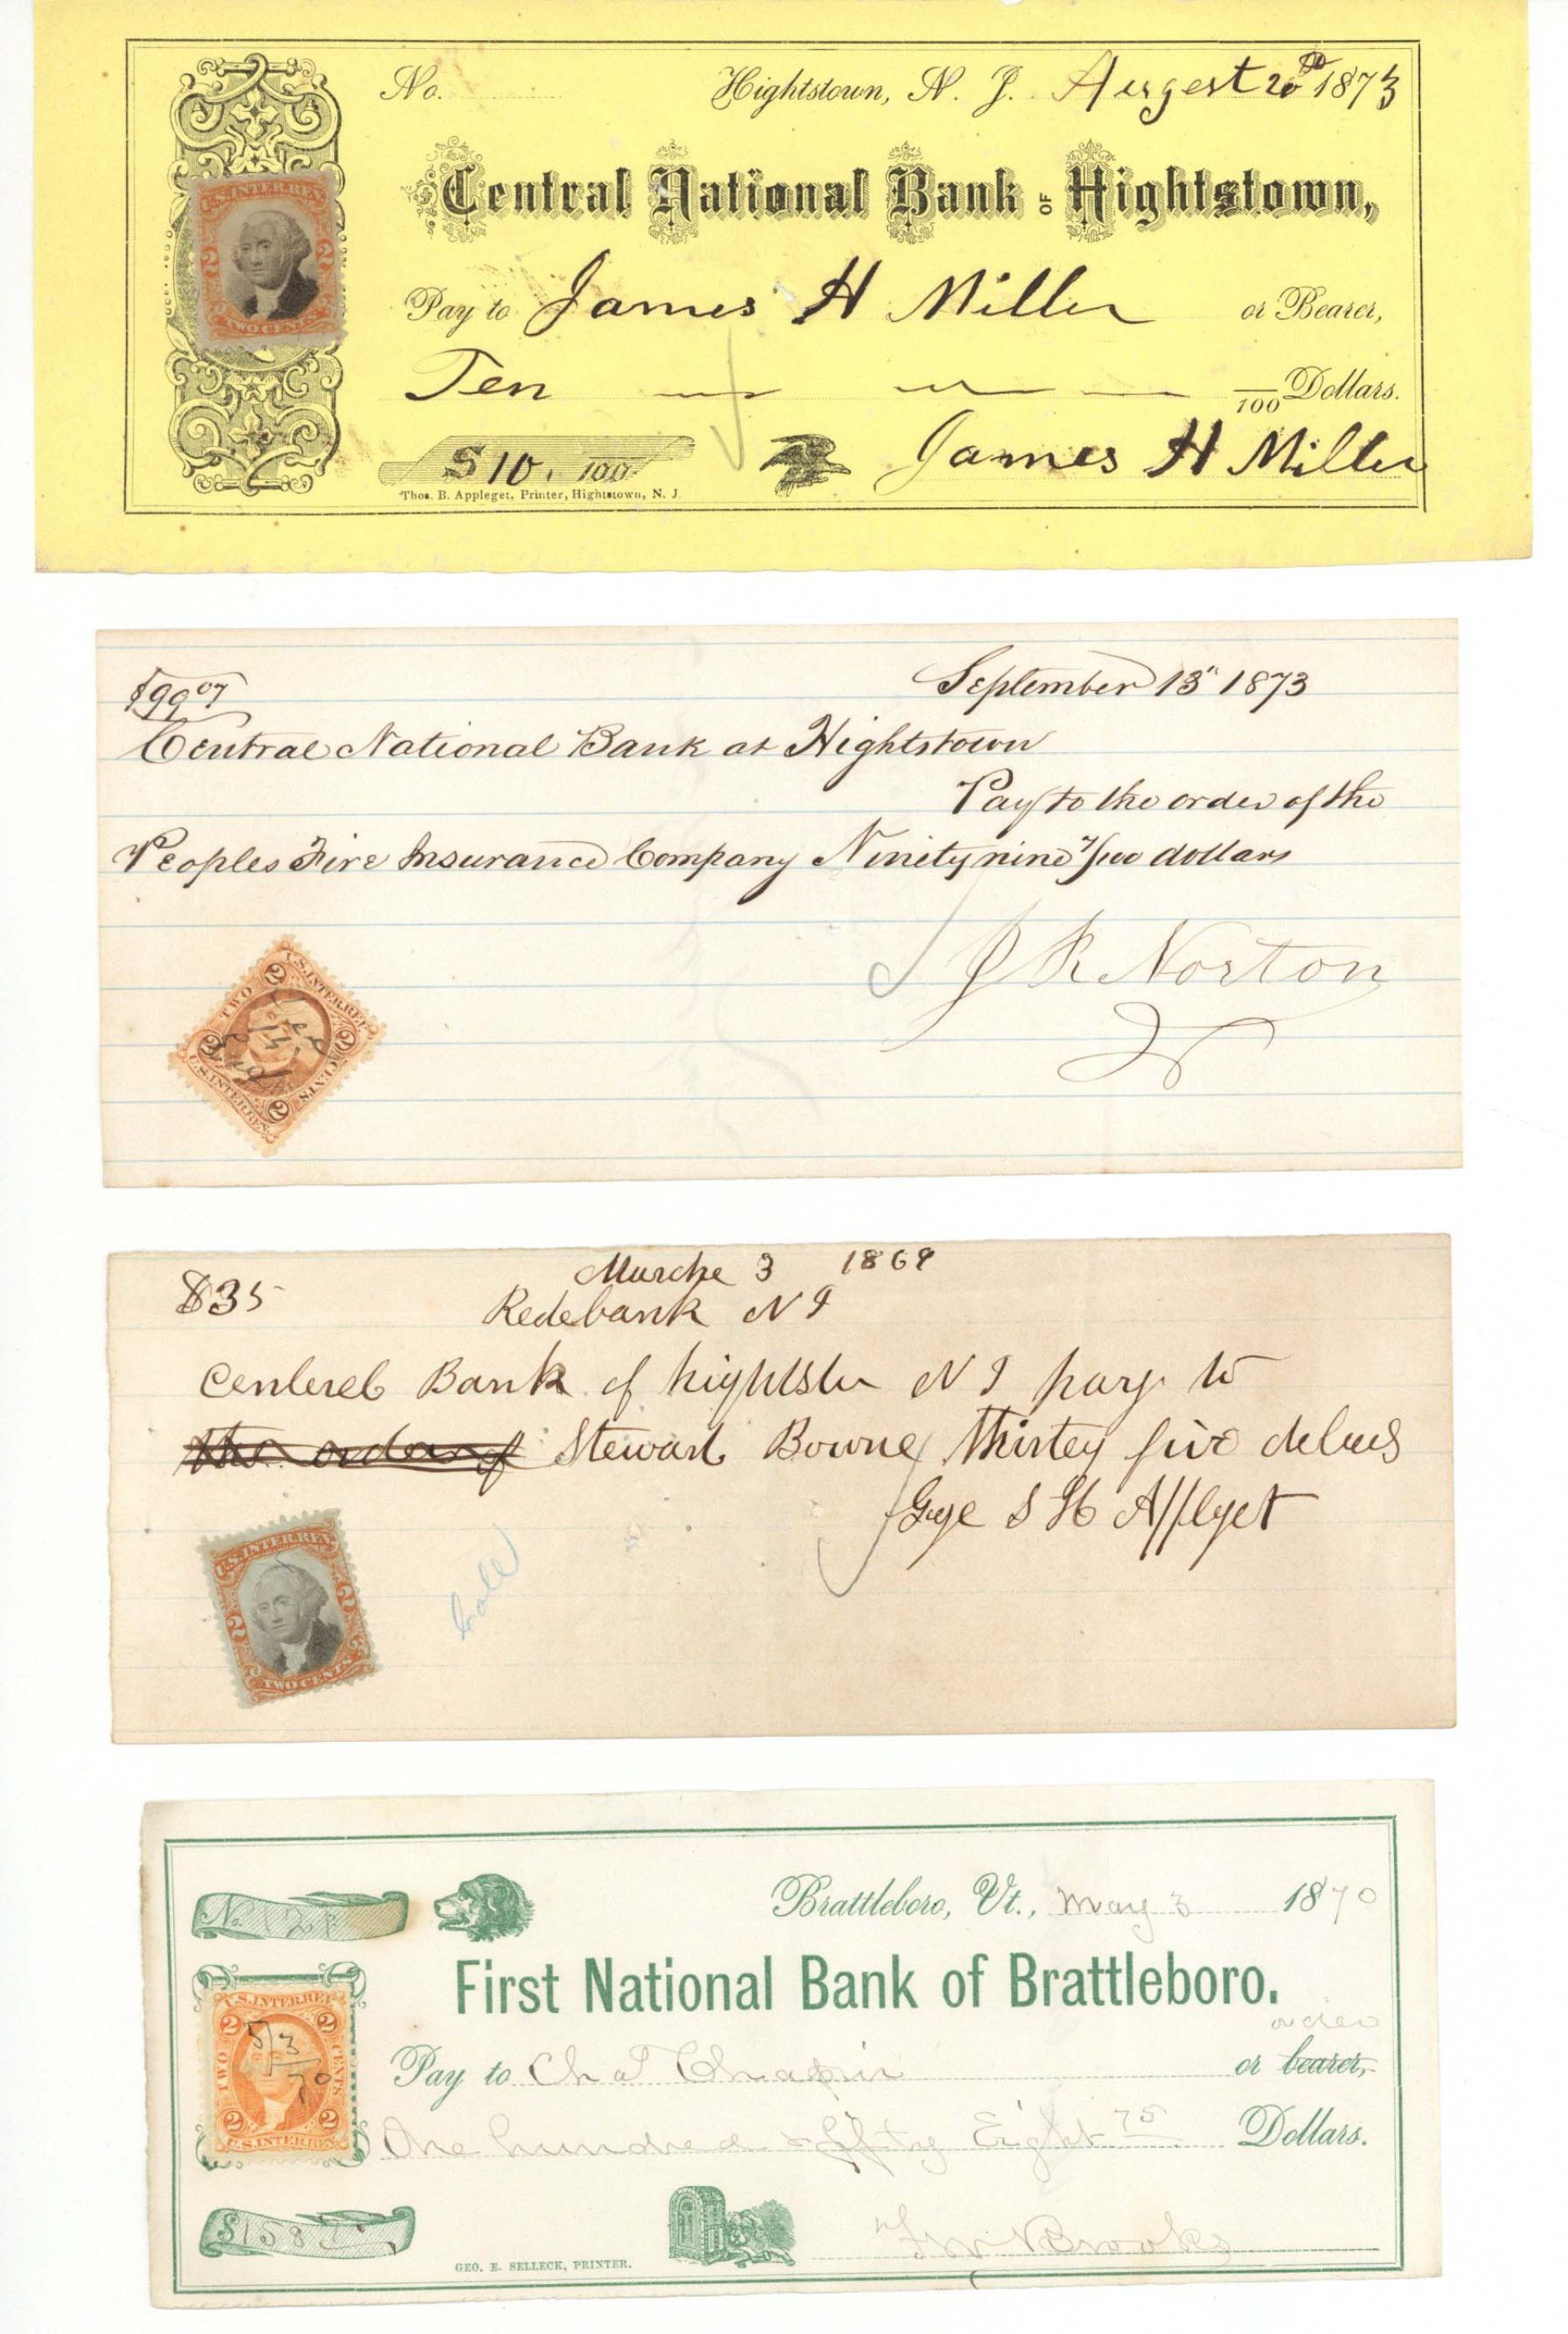 No. Hightstown, N. J. Augest 20th 1873
Central National Bank OF Hightstown,
Pay to James H Miller or Bearer,
Ten /100 Dollars.
$10. 100 James H Miller
Thos. B. Appleget, Printer, Hightstown, N. J.
U.S. INTER. REV.
2 2
TWO CENTS
$99 07 September 13" 1873
Central National Bank at Hightstown
Pay to the order of the
Peoples Fire Insurance Company Ninety nine 7/100 dollars
J R Norton
U.S. INTER. REV.
TWO CENTS
2 2 2 2
U.S. INTER. REV.
$35 Marche 3 1869
Redebank N J
Centerel Bank of hightstn N J pay to
the order of Stewart Bowne thirtey five
S H
U.S. INTER. REV.
2 2
TWO CENTS
No. Brattleboro, Vt., May 3 1870
First National Bank of Brattleboro.
order
Pay to Chas Chapin or bearer,
One hundred & fifty Eight 75 Dollars.
$158
Brooks
GEO. E. SELLECK, PRINTER.
U.S. INTER. REV.
2 2
5/3
70
TWO CENTS
2 2
U.S. INTER. REV.